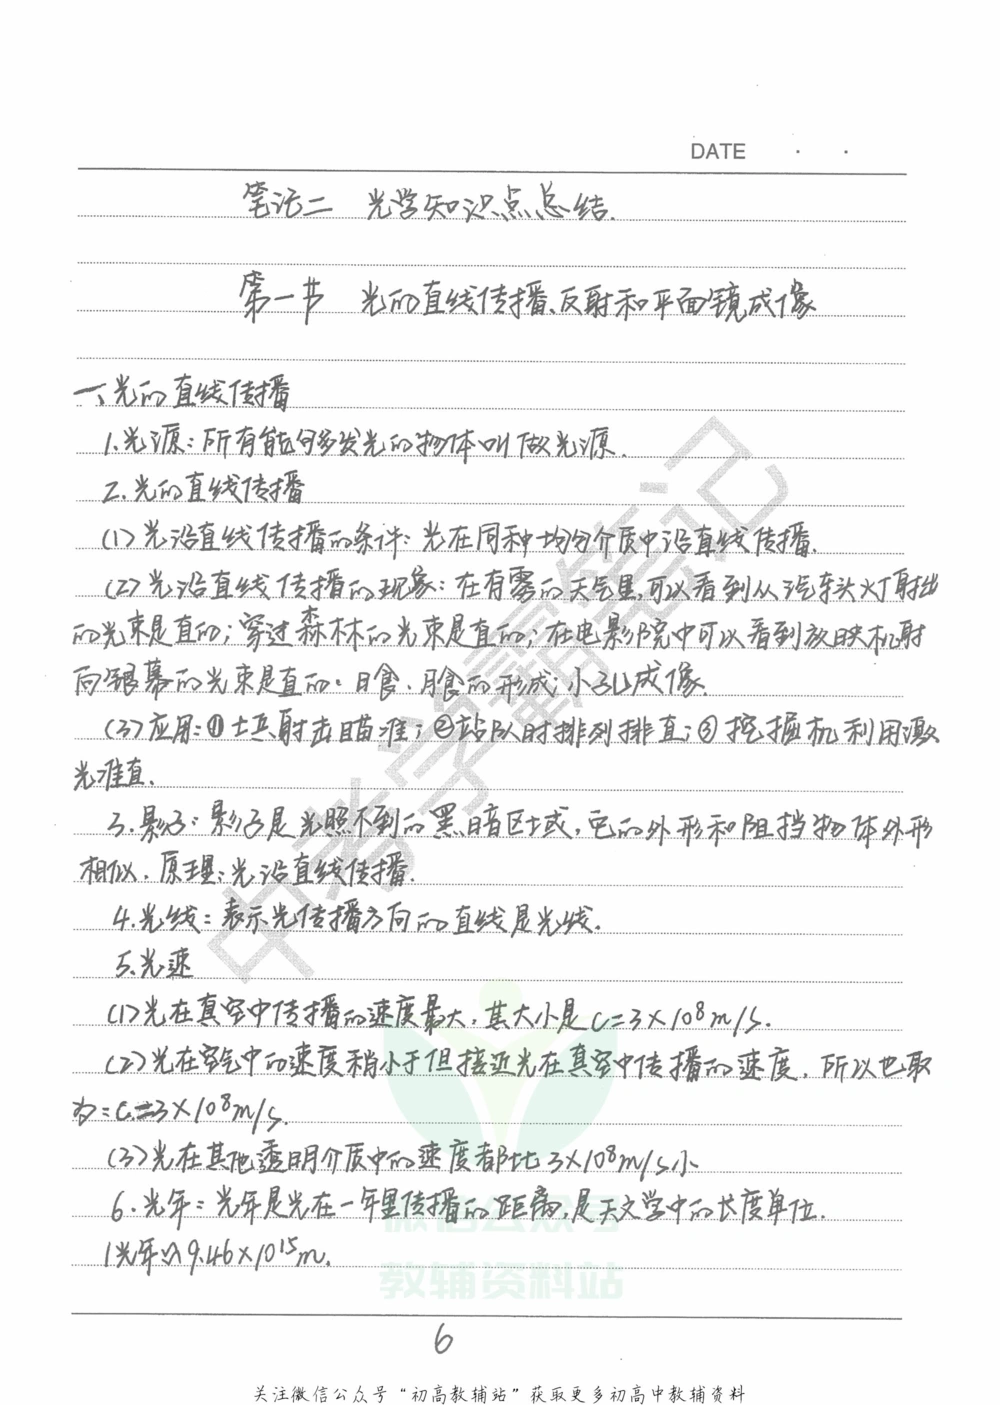 DATE · ·
笔记二 光学知识点总结.
第一节 光的直线传播、反射和平面镜成像
一、光的直线传播
1.光源:所有能够发光的物体叫做光源.
2.光的直线传播
(1)光沿直线传播的条件:光在同种均匀介质中沿直线传播.
(2)光沿直线传播的现象:在有雾的天气里,可以看到从汽车头灯射出
的光束是直的;穿过森林的光束是直的;在电影院中可以看到放映机射
向银幕的光束是直的.日食、月食的形成;小孔成像.
(3)应用:①士兵射击瞄准;②站队时排列排直;③挖掘机利用激
光准直.
3.影子:影子是光照不到的黑暗区域,它的外形和阻挡物体外形
相似.原理:光沿直线传播.
4.光线:表示光传播方向的直线是光线.
5.光速
(1)光在真空中传播的速度最大,其大小是C=3×10⁸m/s.
(2)光在空气中的速度稍小于但接近光在真空中传播的速度,所以也取
为:C=3×10⁸m/s.
(3)光在其他透明介质中的速度都比3×10⁸m/s小
6.光年:光年是光在一年里传播的距离,是天文学中的长度单位.
1光年≈9.46×10¹⁵m.
中考学霸笔记
微信公众号
教辅资料站
6
关注微信公众号“初高教辅站”获取更多初高中教辅资料